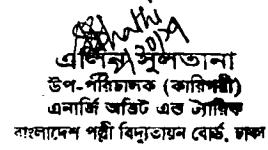 এলিন সুলতানা
উপ-পরিচালক (কারিগরী)
এনার্জি অডিট এন্ড ট্যারিফ
বাংলাদেশ পল্লী বিদ্যুতায়ন বোর্ড, ঢাকা